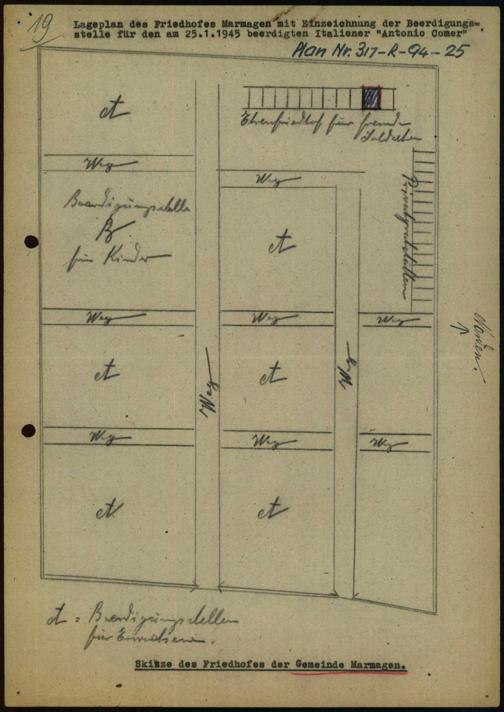 19
Lageplan des Friedhofes Marmagen mit Einzeichnung der Beerdigungs=
stelle für den am 25.1.1945 beerdigten Italiener "Antonio Comer"
Plan Nr. 317-R-94-25
A
Ehrenfriedhof für fremde
Soldaten
Weg
Weg
Privatgrabstätten
Beerdigungsstelle
B
für Kinder
A
Weg
Weg
Weg
Norden.
A
Weg
A
Weg
Weg
Weg
Weg
A
A
A = Beerdigungsstellen
für Erwachsene.
Skitze des Friedhofes der Gemeinde Marmagen.